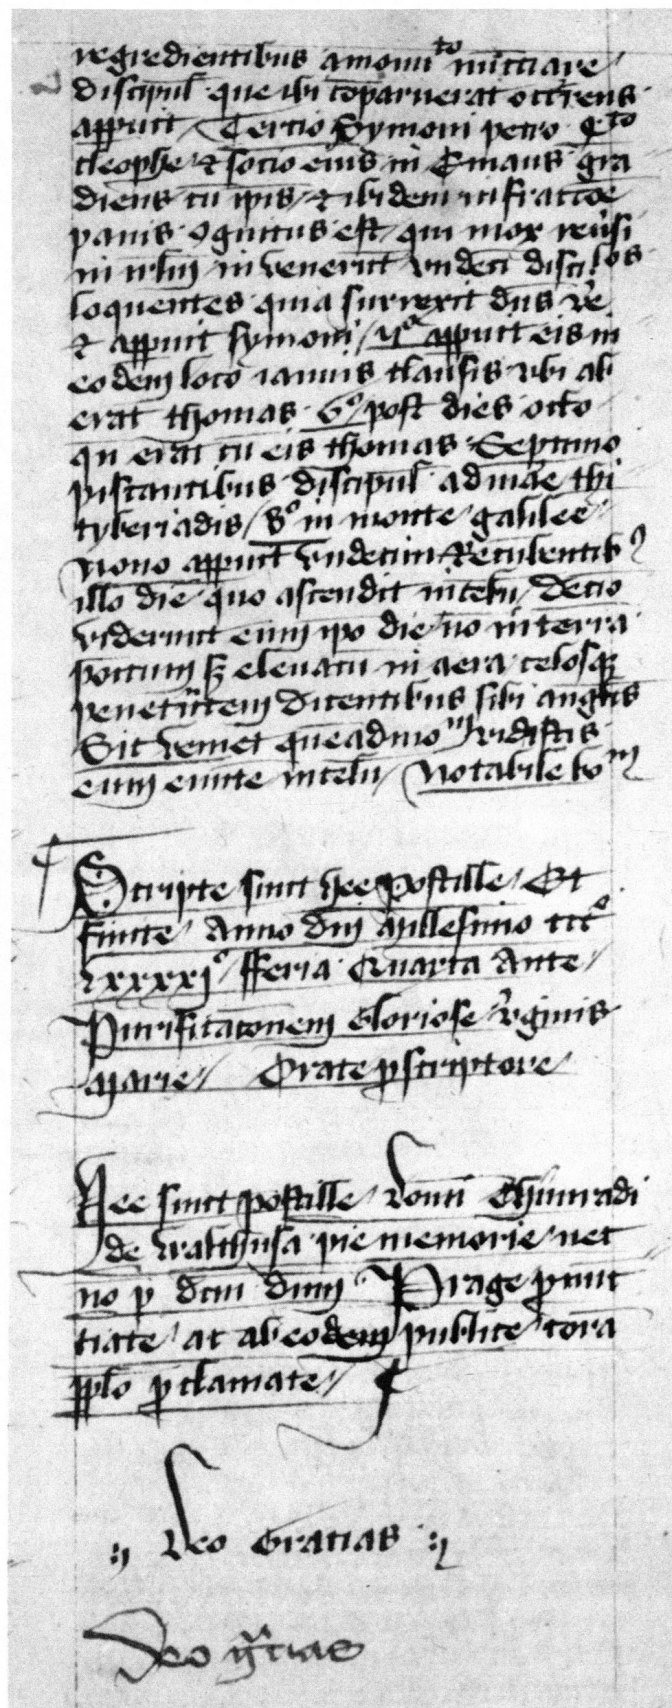 regredientibus amonumto nūcciare
discipul que ibi cōparuerat occr̄ens
apparuit Tercio Symoni petro qto
cleophe & socio eius in Emaus gra
diens cū ip̄is & ibidem in fractiōe
panis 9gnitus est qui mox reūsi
in ur̄lm in venerūt undeci discilos
loquentes quia surrexit dn̄s v̄e
& apparuit symoni / vo apparuit eis in
eodem loco ianuis clausis ubi ab
erat thomas 6o post dies octo
qn̄ erat cū eis thomas Septimo
piscantibus discipul ad mār̄e thi
tyberiadis / 8o in monte galilee
Nono apparuit undecim Recūbentib9
illo die quo ascendit in celū Decīo
viderunt eum ip̄o die nō in terra
positum s̄ elevatū in aera celosq̨
penetrātem dicentibus sibi angl̄is
Sic veniet quēadmom vidistis
eum eunte in celū / Notabile bom
Scripte sunt hee postille Et
finite Anno dn̄i Millesimo ccco
lxxxxjo fferia Quarta Ante
Purificacōnem Gloriose v̄ginis
Marie / Orate p scriptore
Hee sunt postille dom̄i Chunradi
de walthusa pie memorie nec
nō p dc̄m dn̄m Prage p̄nūc
ciate ac ab eodem publice corā
pplo pclamate
Deo Gracias
Deo gr̄cias